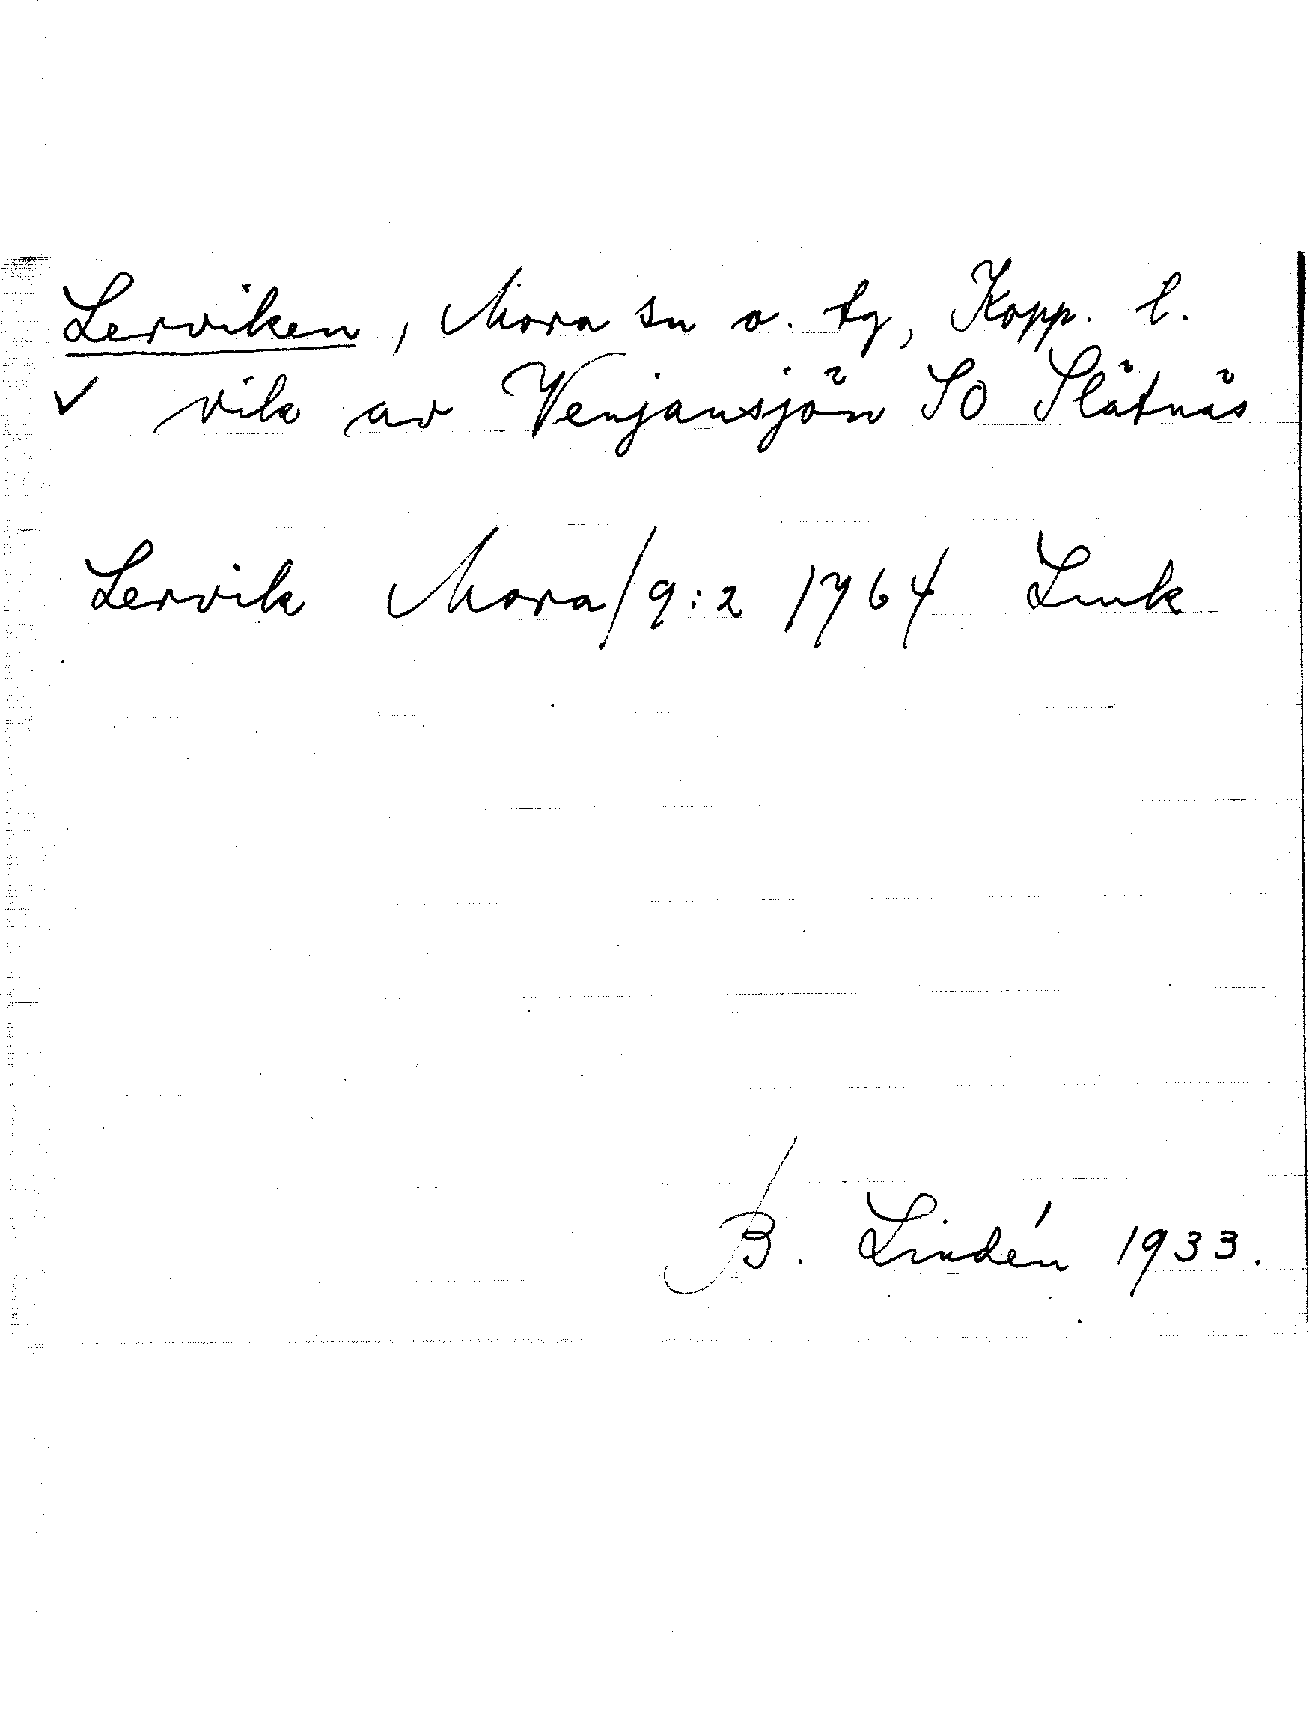 Lerviken, Mora sn o. tg, Kopp. l.
✓ vik av Venjansjön SO Slätnäs
Lervik Mora/9:2 1764 Lmk
B. Lindén 1933.